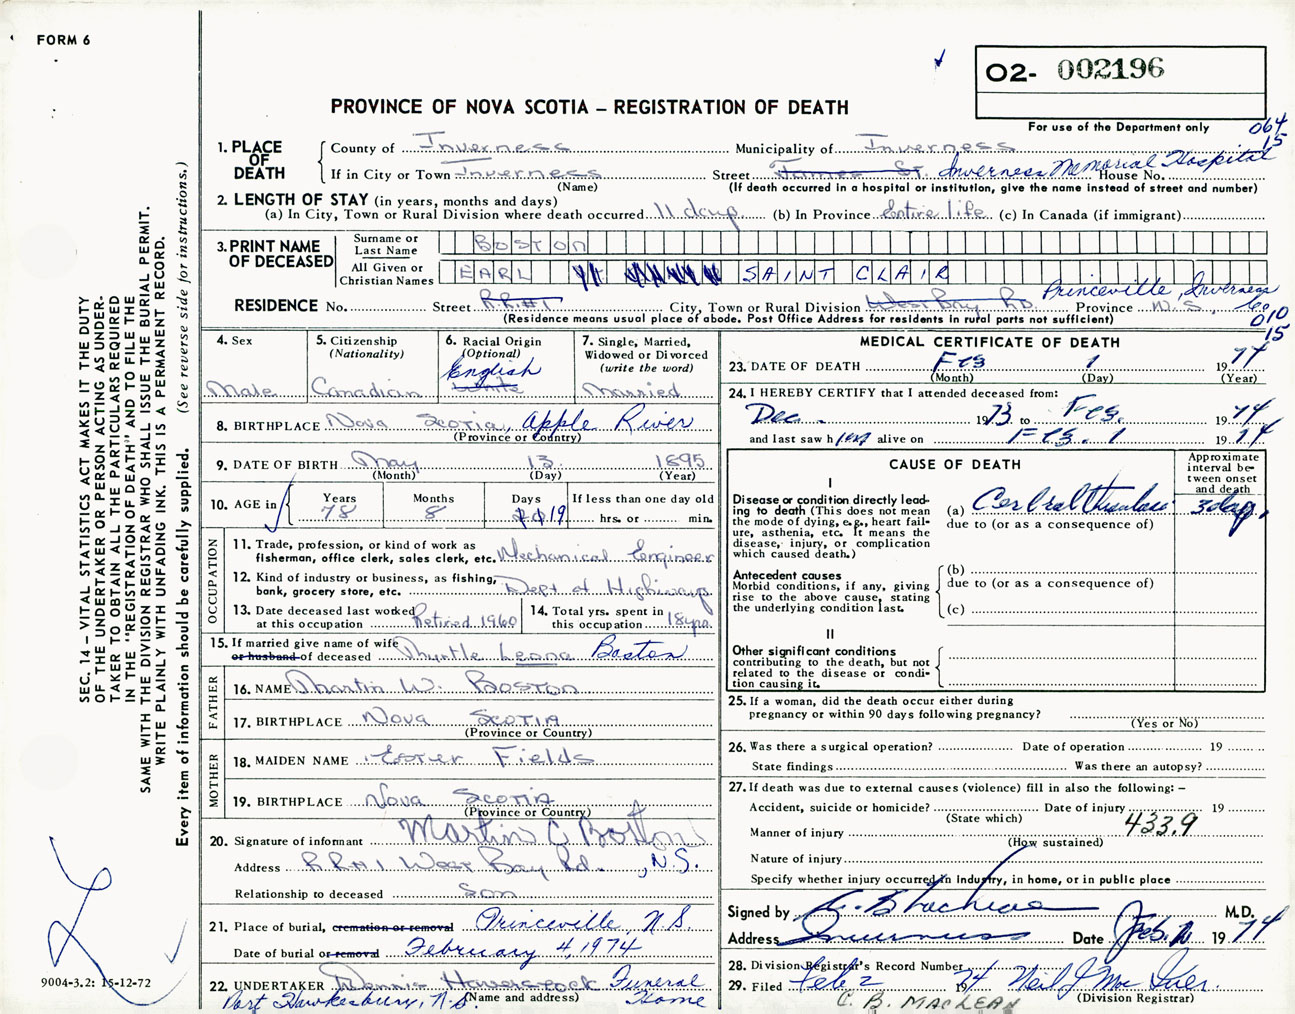 FORM 6
O2- 002196
PROVINCE OF NOVA SCOTIA – REGISTRATION OF DEATH
For use of the Department only
064
15
1. PLACE OF DEATH
County of Inverness Municipality of Inverness
If in City or Town Inverness Street James St. Inverness Memorial Hospital House No.
(Name) (If death occurred in a hospital or institution, give the name instead of street and number)
2. LENGTH OF STAY (in years, months and days)
(a) In City, Town or Rural Division where death occurred 11 days (b) In Province Entire life (c) In Canada (if immigrant)
3. PRINT NAME OF DECEASED
Surname or Last Name BOSTON
All Given or Christian Names EARL SAINT CLAIR
Princeville, Inverness Co.
RESIDENCE No. Street R.R.#1 City, Town or Rural Division West Bay Rd Province N.S.
(Residence means usual place of abode. Post Office Address for residents in rural parts not sufficient)
010
15
4. Sex
Male
5. Citizenship
(Nationality)
Canadian
6. Racial Origin
(Optional)
English
White
7. Single, Married,
Widowed or Divorced
(write the word)
Married
8. BIRTHPLACE Nova Scotia, Apple River
(Province or Country)
9. DATE OF BIRTH May 13 1895
(Month) (Day) (Year)
10. AGE in Years Months Days If less than one day old
78 8 19 hrs. or min.
OCCUPATION
11. Trade, profession, or kind of work as
fisherman, office clerk, sales clerk, etc. Mechanical Engineer
12. Kind of industry or business, as fishing,
bank, grocery store, etc. Dept of Highways
13. Date deceased last worked
at this occupation Retired 1960
14. Total yrs. spent in
this occupation 18 yrs.
15. If married give name of wife
or husband of deceased Myrtle Leona Boston
FATHER
16. NAME Martin W. Boston
17. BIRTHPLACE Nova Scotia
(Province or Country)
MOTHER
18. MAIDEN NAME Ester Fields
19. BIRTHPLACE Nova Scotia
(Province or Country)
20. Signature of informant Martin C Boston
Address R.R#1 West Bay Rd., N.S.
Relationship to deceased son
21. Place of burial, cremation or removal Princeville, N.S.
Date of burial or removal February 4, 1974
22. UNDERTAKER Dennis Funeral Home
Port Hawkesbury, N.S. (Name and address)
MEDICAL CERTIFICATE OF DEATH
23. DATE OF DEATH Feb 1 1974
(Month) (Day) (Year)
24. I HEREBY CERTIFY that I attended deceased from:
Dec. 1973 to Feb. 1974
and last saw him alive on Feb. 1 1974
CAUSE OF DEATH
Approximate
interval be-
tween onset
and death
I
Disease or condition directly lead-
ing to death (This does not mean
the mode of dying, e.g., heart fail-
ure, asthenia, etc. It means the
disease, injury, or complication
which caused death.)
(a) Cerbral 3 days.
due to (or as a consequence of)
Antecedent causes
Morbid conditions, if any, giving
rise to the above cause, stating
the underlying condition last.
(b)
due to (or as a consequence of)
(c)
II
Other significant conditions
contributing to the death, but not
related to the disease or condi-
tion causing it.
25. If a woman, did the death occur either during
pregnancy or within 90 days following pregnancy?
(Yes or No)
26. Was there a surgical operation? Date of operation 19
State findings Was there an autopsy?
27. If death was due to external causes (violence) fill in also the following: –
Accident, suicide or homicide? Date of injury 19
(State which)
433.9
Manner of injury
(How sustained)
Nature of injury
Specify whether injury occurred in Industry, in home, or in public place
Signed by M.D.
Address Inverness Date Feb. 1974
28. Division Registrar's Record Number
29. Filed Feb 2 1974 Neil J
(Division Registrar)
C. B. MACLEAN
SEC. 14 – VITAL STATISTICS ACT MAKES IT THE DUTY
OF THE UNDERTAKER OR PERSON ACTING AS UNDER-
TAKER TO OBTAIN ALL THE PARTICULARS REQUIRED
IN THE "REGISTRATION OF DEATH" AND TO FILE THE
SAME WITH THE DIVISION REGISTRAR WHO SHALL ISSUE THE BURIAL PERMIT.
WRITE PLAINLY WITH UNFADING INK. THIS IS A PERMANENT RECORD.
Every item of information should be carefully supplied. (See reverse side for instructions.)
9004-3.2: 15-12-72